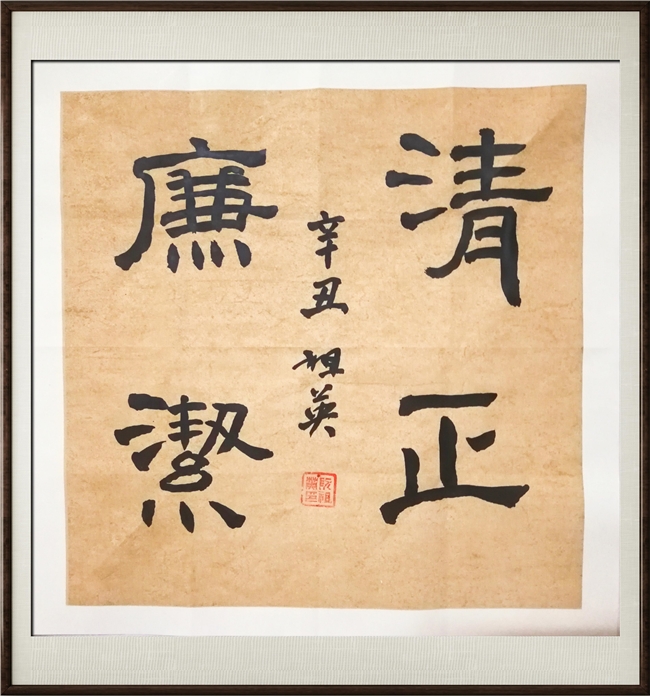 清正
廉潔
辛丑 祖英